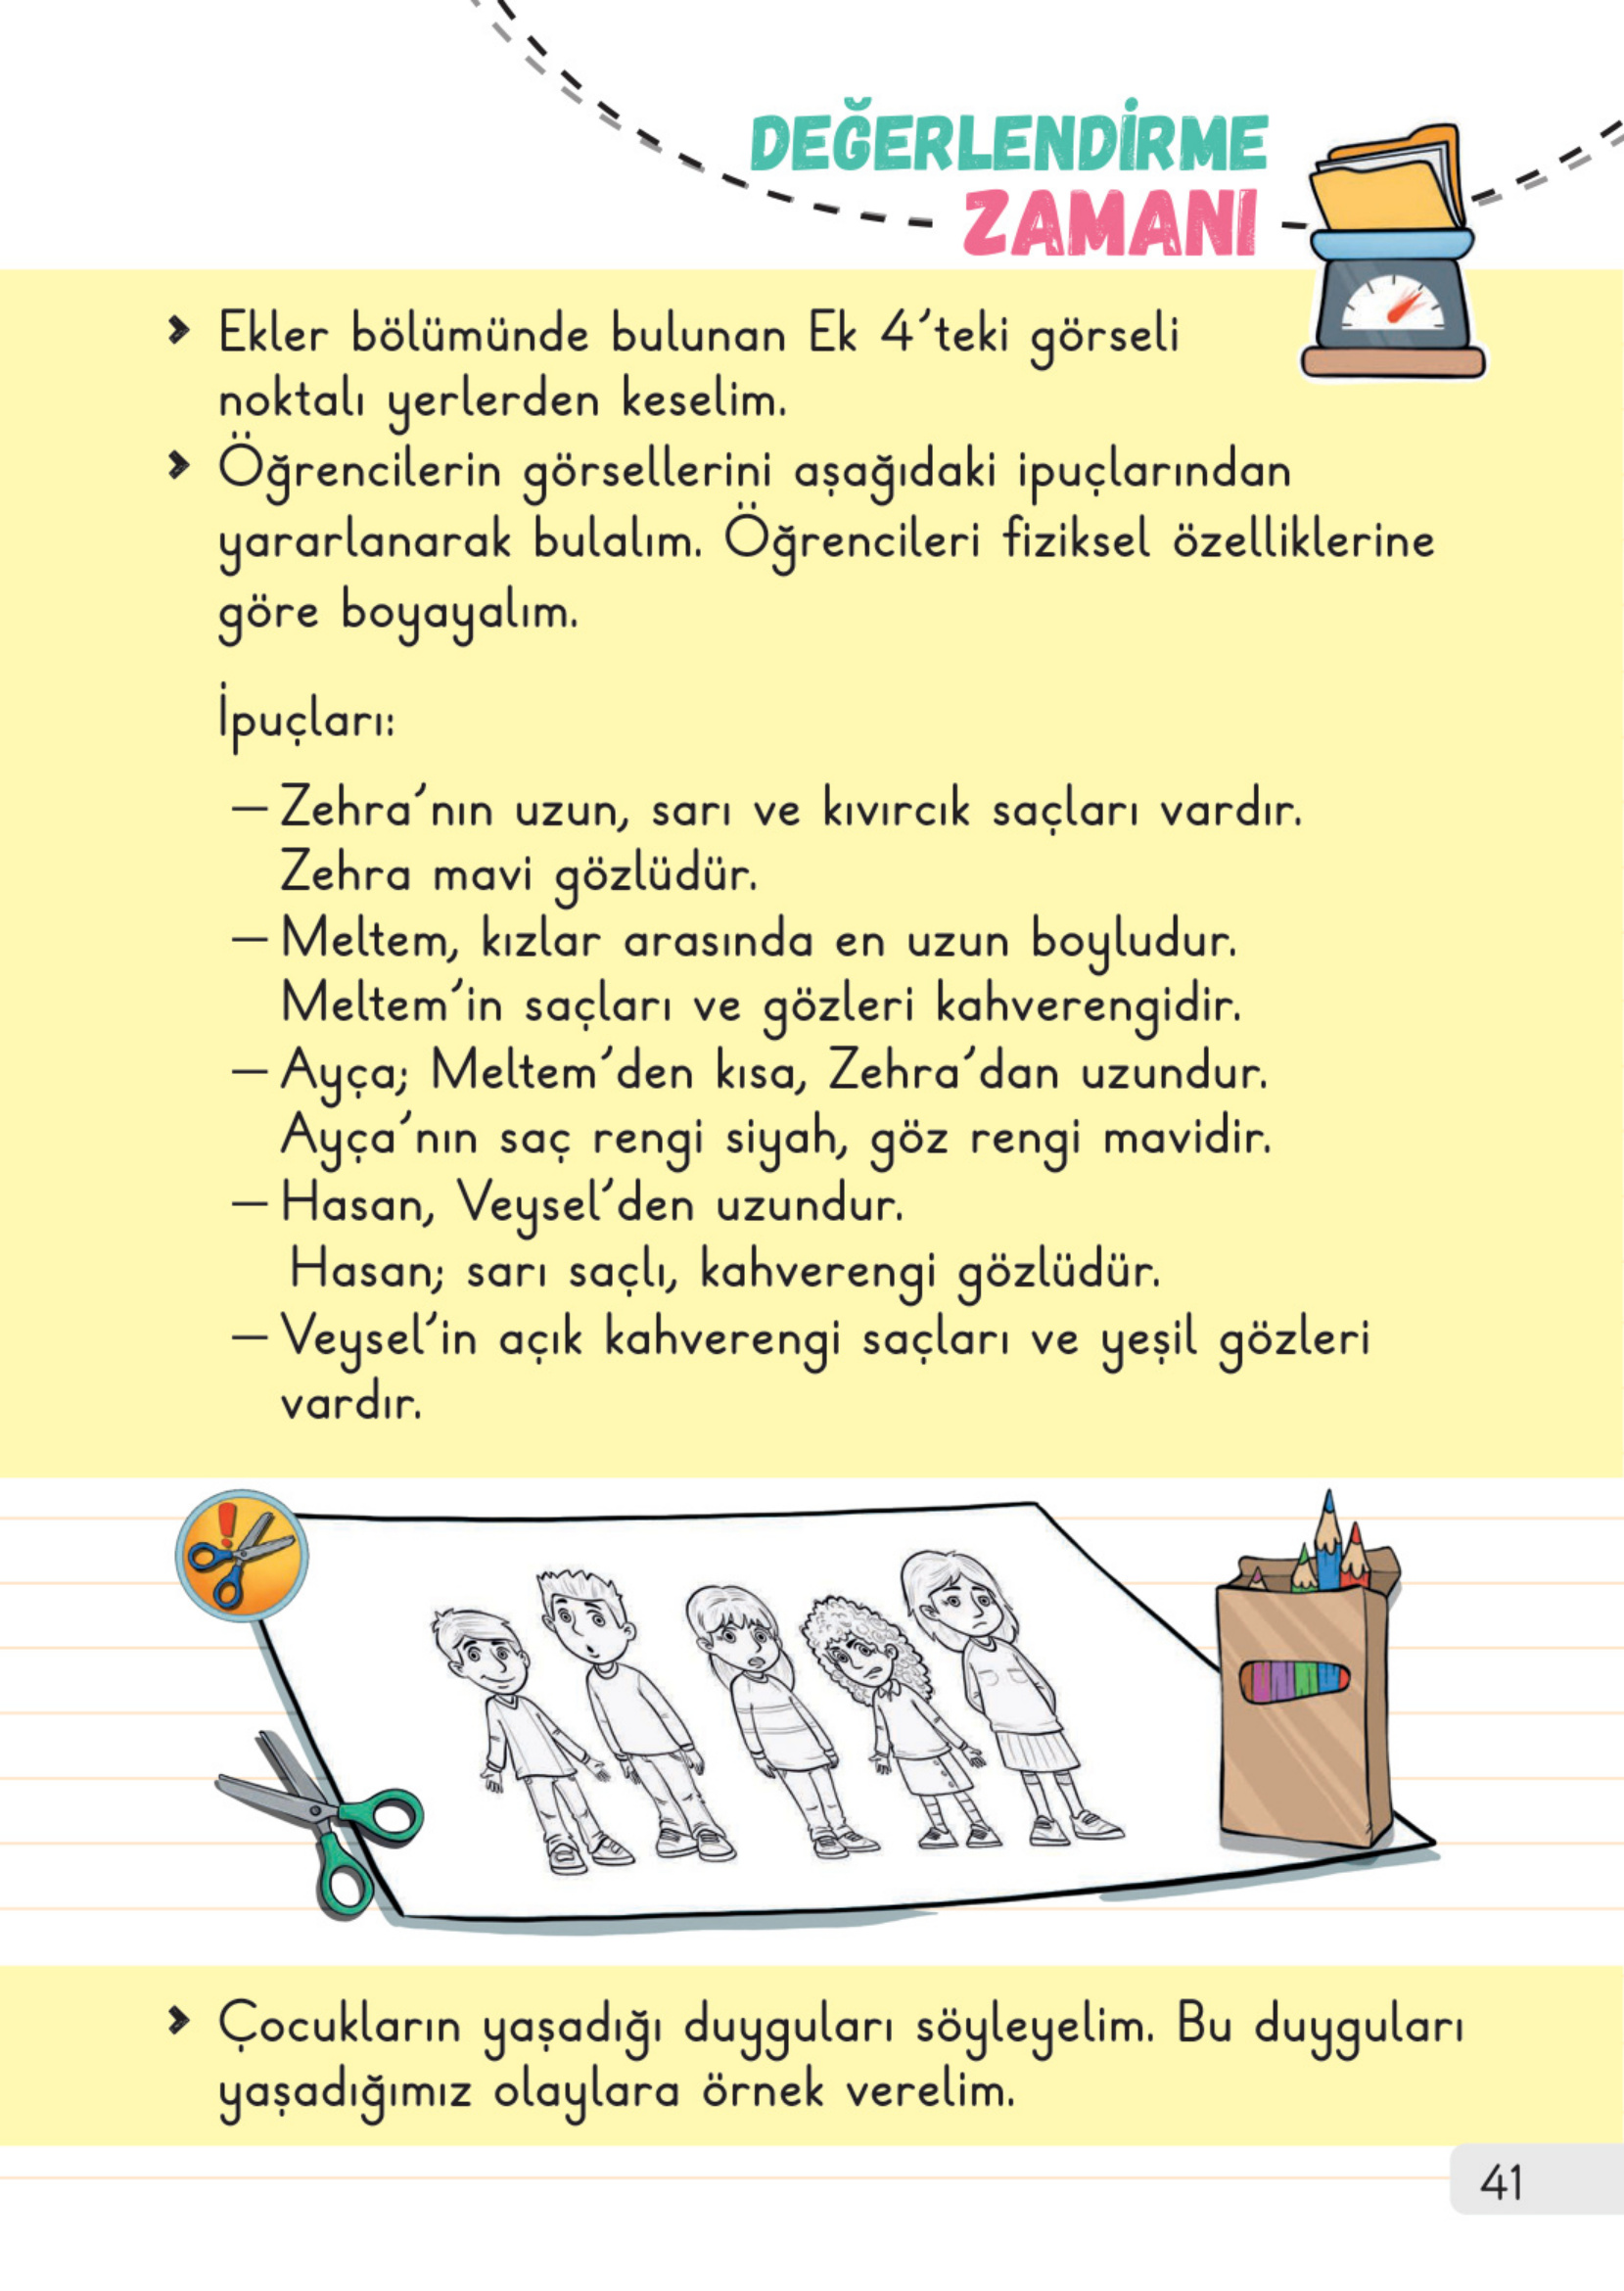 DEĞERLENDİRME
ZAMANI
Ekler bölümünde bulunan Ek 4'teki görseli
noktalı yerlerden keselim.
Öğrencilerin görsellerini aşağıdaki ipuçlarından
yararlanarak bulalım. Öğrencileri fiziksel özelliklerine
göre boyayalım.
İpuçları:
— Zehra'nın uzun, sarı ve kıvırcık saçları vardır.
Zehra mavi gözlüdür.
— Meltem, kızlar arasında en uzun boyludur.
Meltem'in saçları ve gözleri kahverengidir.
— Ayça; Meltem'den kısa, Zehra'dan uzundur.
Ayça'nın saç rengi siyah, göz rengi mavidir.
— Hasan, Veysel'den uzundur.
Hasan; sarı saçlı, kahverengi gözlüdür.
— Veysel'in açık kahverengi saçları ve yeşil gözleri
vardır.
Çocukların yaşadığı duyguları söyleyelim. Bu duyguları
yaşadığımız olaylara örnek verelim.
41